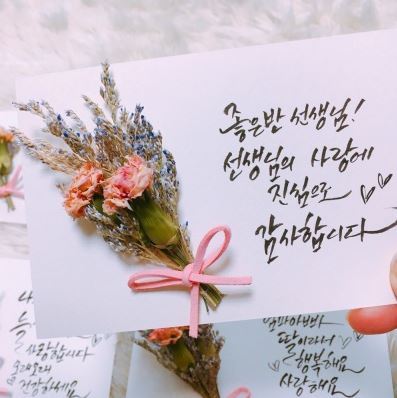 좋은반 선생님!
선생님의 사랑에
진심으로
감사합니다
사랑합니다
오래오래
건강하세요
엄마아빠
딸이라서
행복해요
사랑해요